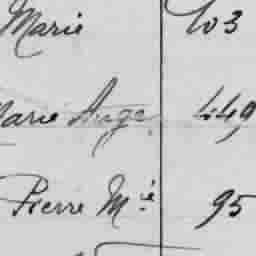 Marie 103
Marie Ange 449
Pierre Mié 95